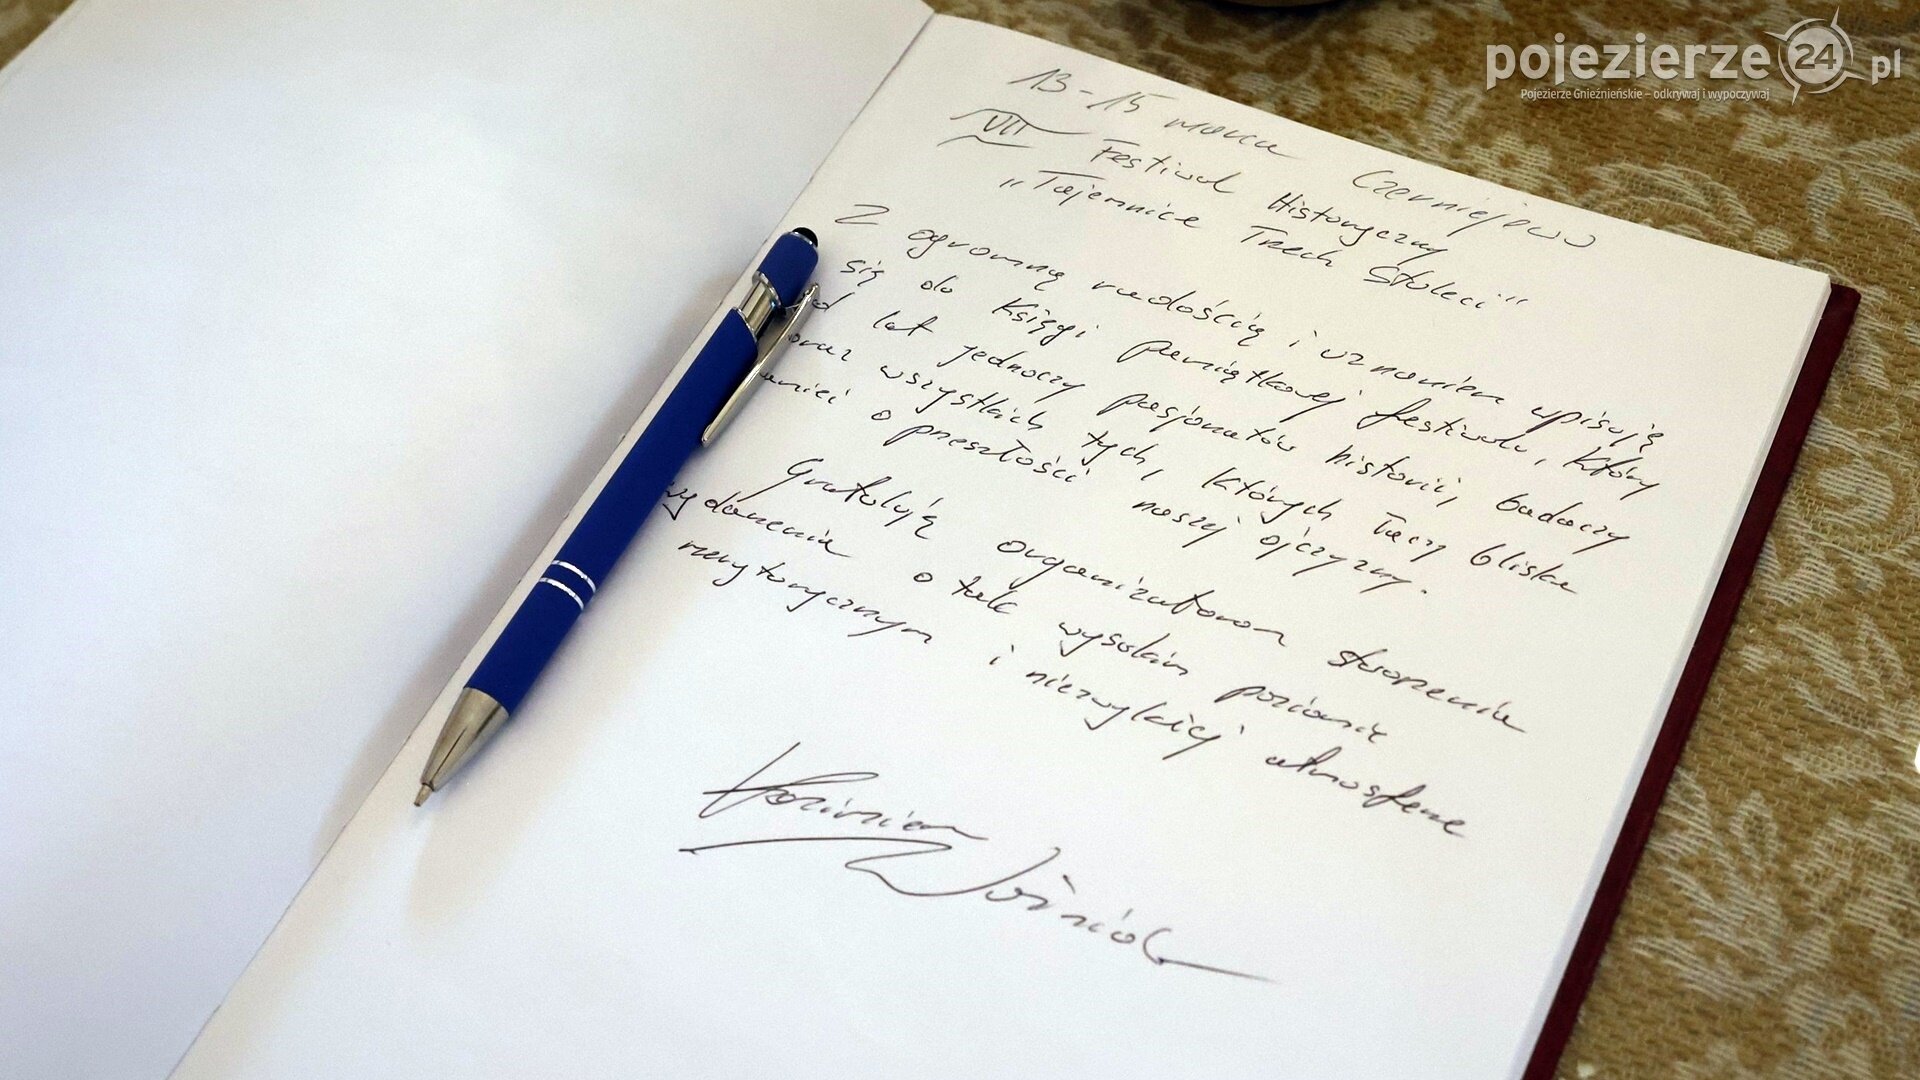 pojezierze24.pl
Pojezierze Gnieźnieńskie – odkrywaj i wypoczywaj
13-15 marca Czerniejewo
VII Festiwal Historyczny
„Tajemnice Trzech Stuleci"
Z ogromną radością i uznaniem wpisuję
się do Księgi pamiątkowej festiwalu, który
od lat jednoczy pasjonatów historii, badaczy
oraz wszystkich tych, których łączy bliska
pamięci o przeszłości naszej ojczyzny.
Gratuluję organizatorom stworzenia
wydarzenia o tak wysokim poziomie
merytorycznym i niezwykłej atmosferze
Kazimierz